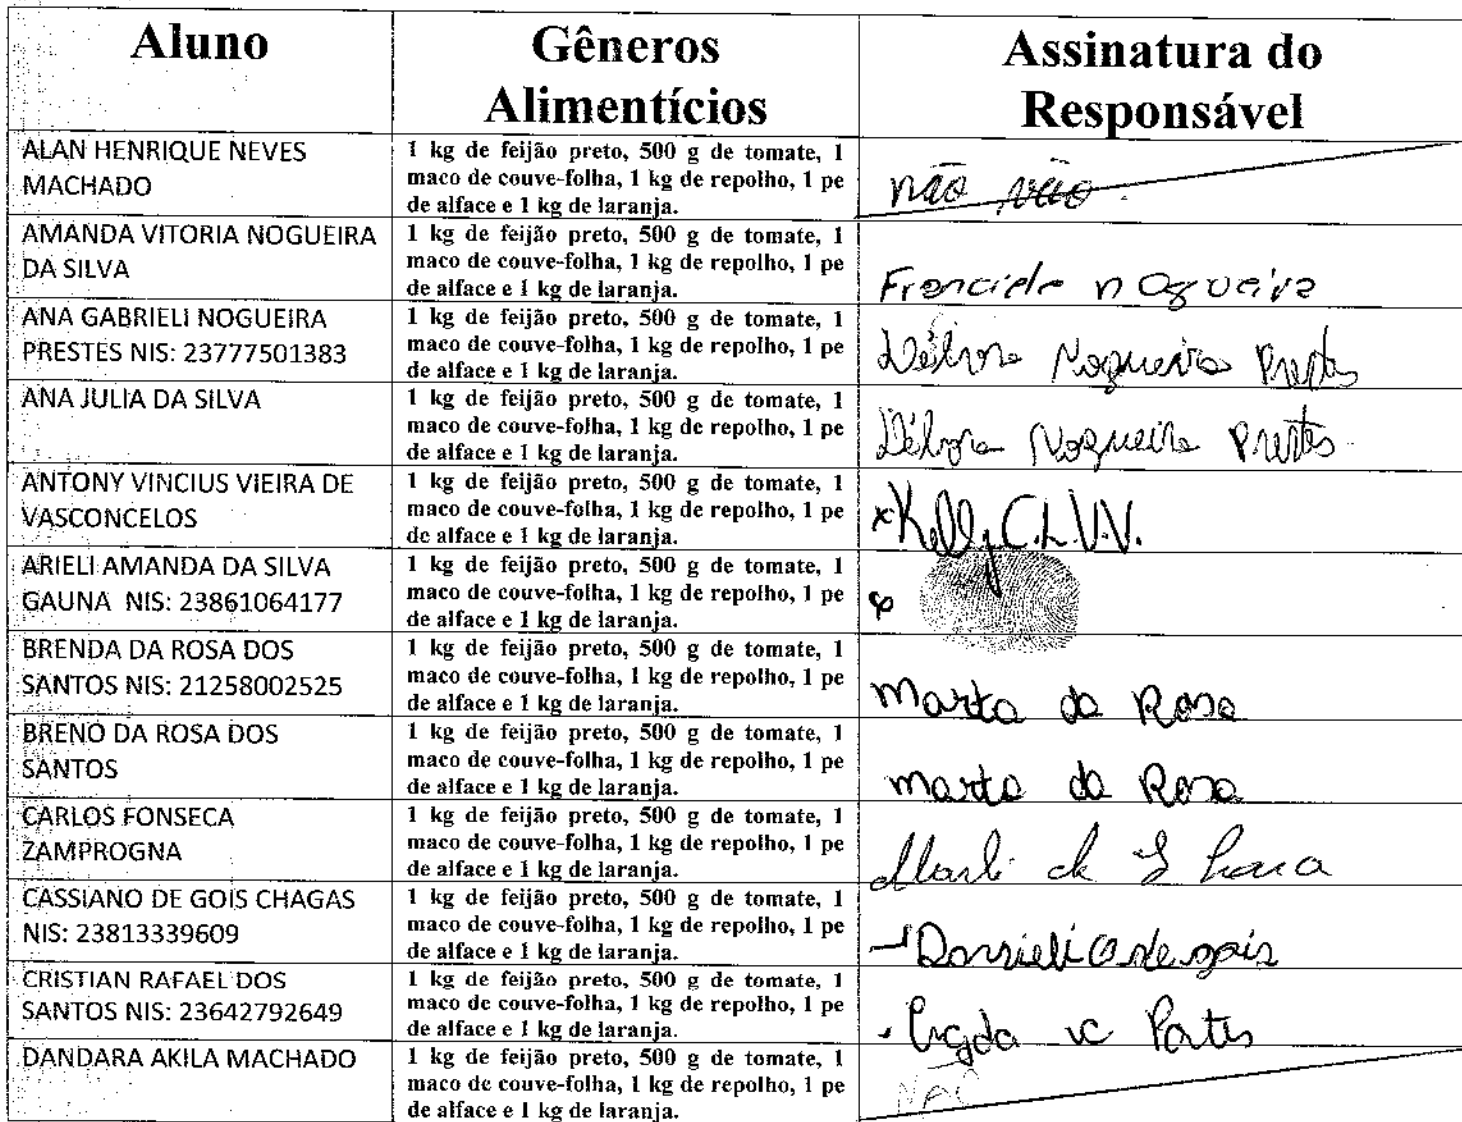 Aluno
Gêneros
Alimentícios
Assinatura do
Responsável
ALAN HENRIQUE NEVES
MACHADO
1 kg de feijão preto, 500 g de tomate, 1
maco de couve-folha, 1 kg de repolho, 1 pe
de alface e 1 kg de laranja.
não veio.
AMANDA VITORIA NOGUEIRA
DA SILVA
1 kg de feijão preto, 500 g de tomate, 1
maco de couve-folha, 1 kg de repolho, 1 pe
de alface e 1 kg de laranja.
Franciele nogueira
ANA GABRIELI NOGUEIRA
PRESTES NIS: 23777501383
1 kg de feijão preto, 500 g de tomate, 1
maco de couve-folha, 1 kg de repolho, 1 pe
de alface e 1 kg de laranja.
Débora Nogueira Prestes
ANA JULIA DA SILVA
1 kg de feijão preto, 500 g de tomate, 1
maco de couve-folha, 1 kg de repolho, 1 pe
de alface e 1 kg de laranja.
Débora Nogueira Prestes
ANTONY VINCIUS VIEIRA DE
VASCONCELOS
1 kg de feijão preto, 500 g de tomate, 1
maco de couve-folha, 1 kg de repolho, 1 pe
de alface e 1 kg de laranja.
x Kelly C.L.V.V.
ARIELI AMANDA DA SILVA
GAUNA NIS: 23861064177
1 kg de feijão preto, 500 g de tomate, 1
maco de couve-folha, 1 kg de repolho, 1 pe
de alface e 1 kg de laranja.
BRENDA DA ROSA DOS
SANTOS NIS: 21258002525
1 kg de feijão preto, 500 g de tomate, 1
maco de couve-folha, 1 kg de repolho, 1 pe
de alface e 1 kg de laranja.
Marta da Rosa
BRENO DA ROSA DOS
SANTOS
1 kg de feijão preto, 500 g de tomate, 1
maco de couve-folha, 1 kg de repolho, 1 pe
de alface e 1 kg de laranja.
marta da Rosa
CARLOS FONSECA
ZAMPROGNA
1 kg de feijão preto, 500 g de tomate, 1
maco de couve-folha, 1 kg de repolho, 1 pe
de alface e 1 kg de laranja.
Marli de
CASSIANO DE GOIS CHAGAS
NIS: 23813339609
1 kg de feijão preto, 500 g de tomate, 1
maco de couve-folha, 1 kg de repolho, 1 pe
de alface e 1 kg de laranja.
de gois
CRISTIAN RAFAEL DOS
SANTOS NIS: 23642792649
1 kg de feijão preto, 500 g de tomate, 1
maco de couve-folha, 1 kg de repolho, 1 pe
de alface e 1 kg de laranja.
DANDARA AKILA MACHADO
1 kg de feijão preto, 500 g de tomate, 1
maco de couve-folha, 1 kg de repolho, 1 pe
de alface e 1 kg de laranja.
NÃO